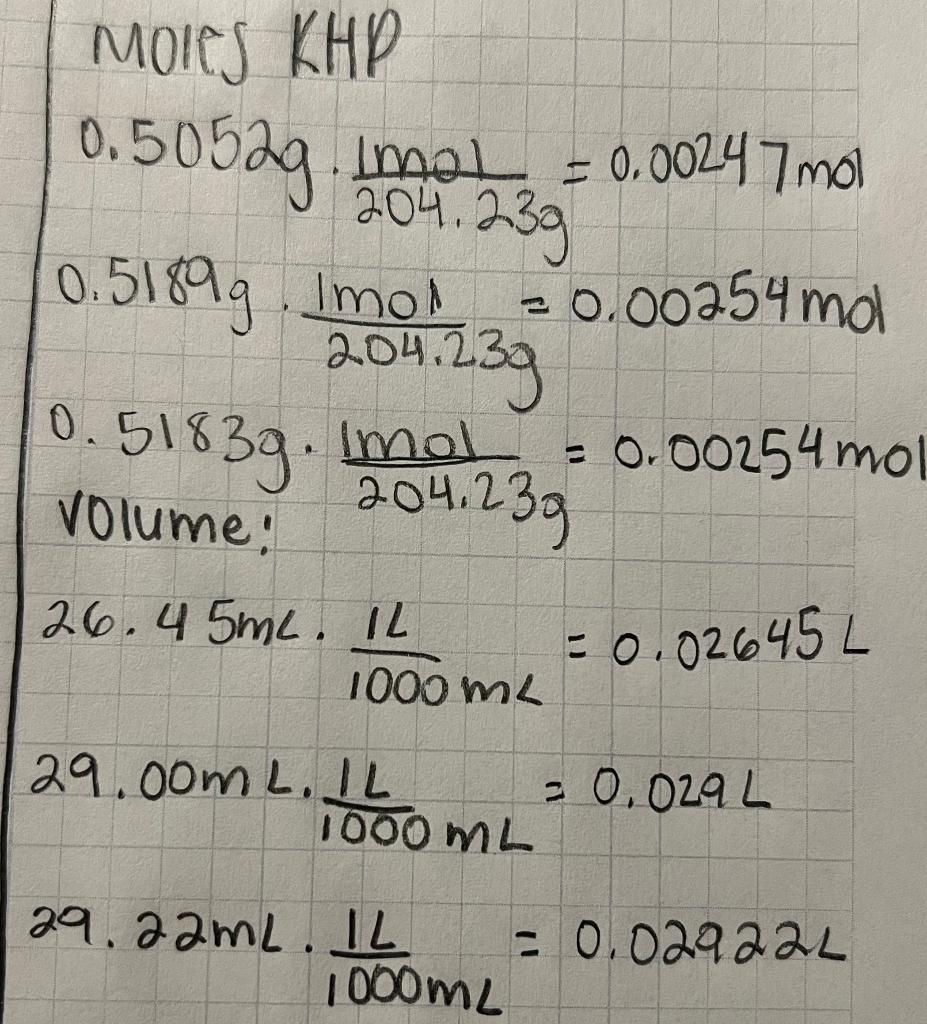 Moles KHP
0.5052g · 1mol / 204.23g = 0.00247mol
0.5189g · 1mol / 204.23g = 0.00254mol
0.5183g · 1mol / 204.23g = 0.00254mol
Volume:
26.45mL · 1L / 1000mL = 0.02645L
29.00mL · 1L / 1000mL = 0.029L
29.22mL · 1L / 1000mL = 0.02922L